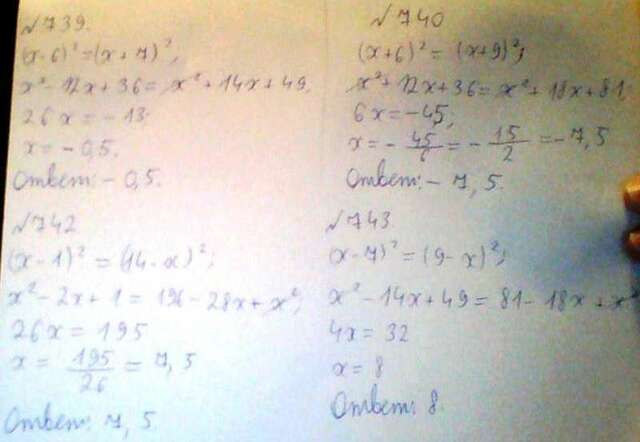 №739.
(x-6)²=(x+7)²;
x²-12x+36=x²+14x+49.
26x=-13.
x=-0,5.
Ответ:-0,5.
№740
(x+6)²=(x+9)²;
x²+12x+36=x²+18x+81.
6x=-45;
x=-45/6=-15/2=-7,5
Ответ:-7,5.
№742
(x-1)²=(14-x)²;
x²-2x+1=196-28x+x²;
26x=195
x=195/26=7,5
Ответ: 7,5.
№743.
(x-7)²=(9-x)²;
x²-14x+49=81-18x+x²
4x=32
x=8
Ответ: 8.